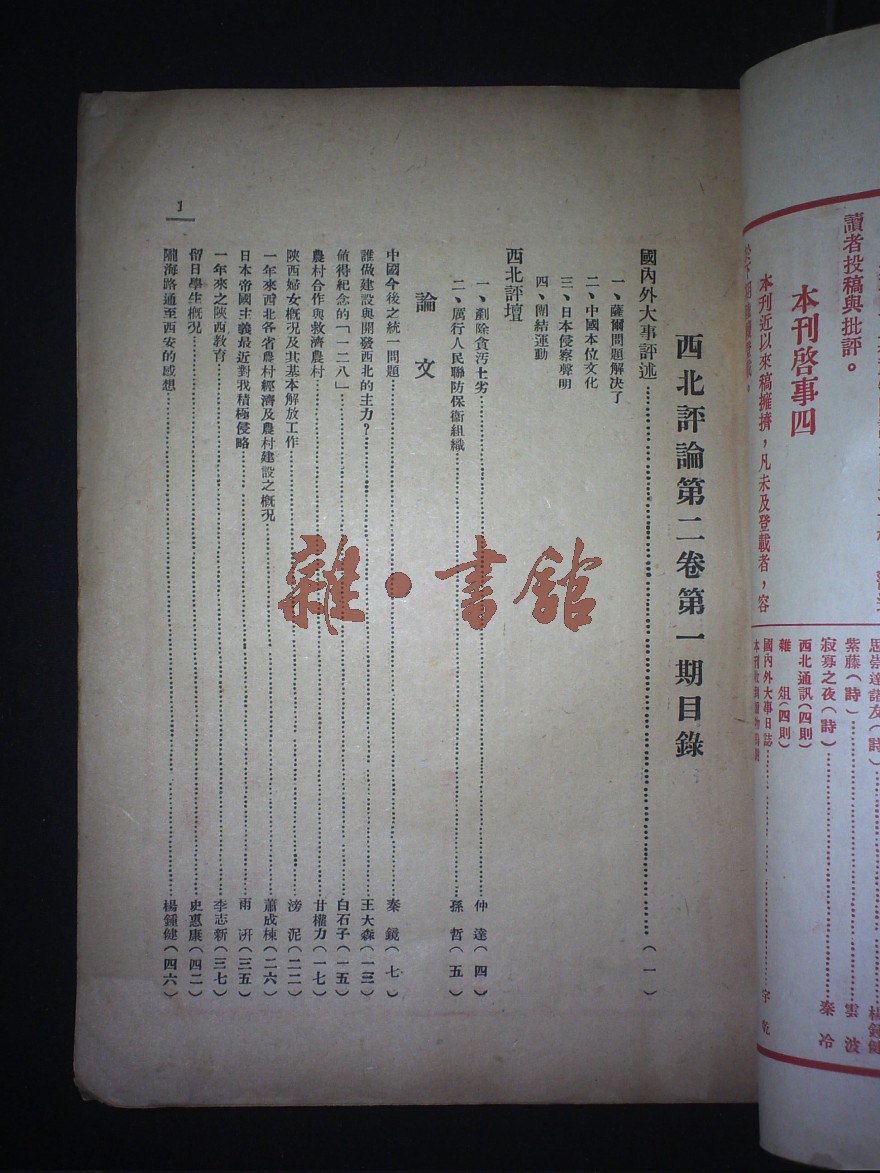 思崇達諸友(詩)
楊鍾健
紫藤(詩)
雲波
讀者投稿與批評。
寂寞之夜(詩)
秦冷
本刊啓事四
西北通訊(四則)
雜俎(四則)
本刊近以來稿擁擠，凡未及登載者，容
國內外大事日誌
西北評論第二卷第一期目錄
國內外大事評述(一)
一、薩爾問題解決了
二、中國本位文化
三、日本侵察聲明
四、團結運動
西北評壇
一、剷除貪污土劣 仲達(四)
二、厲行人民聯防保衛組織 孫哲(五)
論文
中國今後之統一問題 秦鏡(七)
誰做建設與開發西北的主力？ 王大森(一三)
值得紀念的「一二八」 白石子(一五)
農村合作與救濟農村 甘權力(一七)
陝西婦女概況及其基本解放工作 滂泥(二二)
一年來西北各省農村經濟及農村建設之概況 蕭成棟(二六)
日本帝國主義最近對我積極侵略 雨汧(三五)
一年來之陝西教育 李志新(三七)
留日學生概況 史惠康(四二)
隴海路通至西安的感想 楊鍾健(四六)
1
雜·書舘